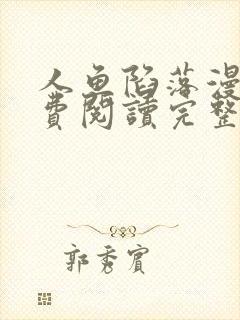 人鱼陷落漫
費閱讀完整
郭秀賓